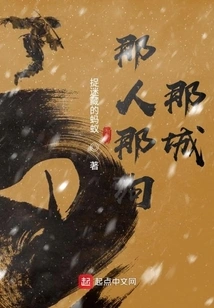 那城
那人那狗
捉迷藏的蚂蚁
著
起点
起点中文网